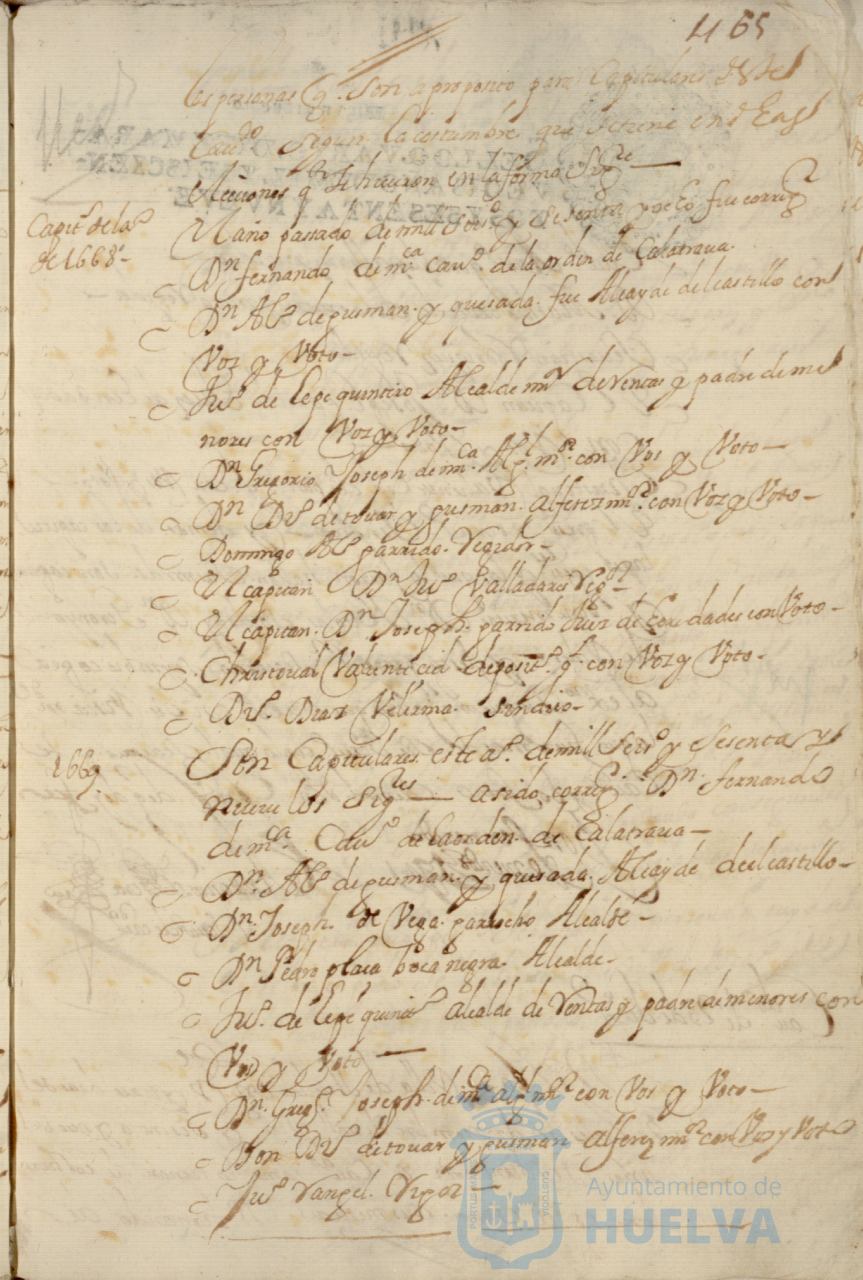 465
las personas q. son a proposito para Capitulares deste
Cavdo segun la costumbre que se tiene en las
elecciones q se hicieron en la forma sigte —
Capitᵉˢ del aᵒ
de 1668 -
El año pasado de mil seisᵒ y sesenta y ocho fue corregᵒʳ
Dⁿ fernando de mᶜᵃ cavᵒ de la orden de Calatrava.
Dⁿ Alᵒ de gusman y quesada fue Alcayde del castillo con
Voz y Voto -
Juᵒ de Lepe quintero Alcalde mᵒʳ de Ventas y padre de me
nores con Voz y Voto -
Dⁿ Gregorio Joseph de mᶜᵃ Algˡ mᵒʳ con Vos y Voto —
Dⁿ Dᵒ de tovar y gusman alferez mᵒʳ con Voz y Voto -
Domingo Alᵒ garrido Regidor -
El capitan Dⁿ Juᵒ Valladares Regᵒʳ -
El capitan Dⁿ Joseph garrido Juez de heredades con Voto -
Christoval Valiente cid deposⁱᵒ gˡ con Voz y Voto -
Dᵒ Diaz Ledesma sindico -
1669
Son Capitulares este aᵒ de mill seisᵒ y sesenta y
nueve los sigᵗᵉˢ — a sido corregᵒʳ Dⁿ fernando
de mᶜᵃ Cavᵒ de la orden de Calatrava —
Dⁿ Alᵒ de gusman y quesada Alcayde del castillo -
Dⁿ Joseph de Vega garrocho Alcalde -
Dⁿ Pedro plaça bocanegra Alcalde -
Juᵒ de Lepe quinᵗᵒ alcalde de Ventas y padre de menores con
Vos y Voto —
Dⁿ Gregᵒ Joseph de mᶜᵃ algˡ mᵒʳ con Vos y Voto —
Don Dᵒ de tovar y gusman alferez mᵒʳ con Voz y Voto
Juᵒ Rangel Regᵒʳ —
Ayuntamiento de
HUELVA